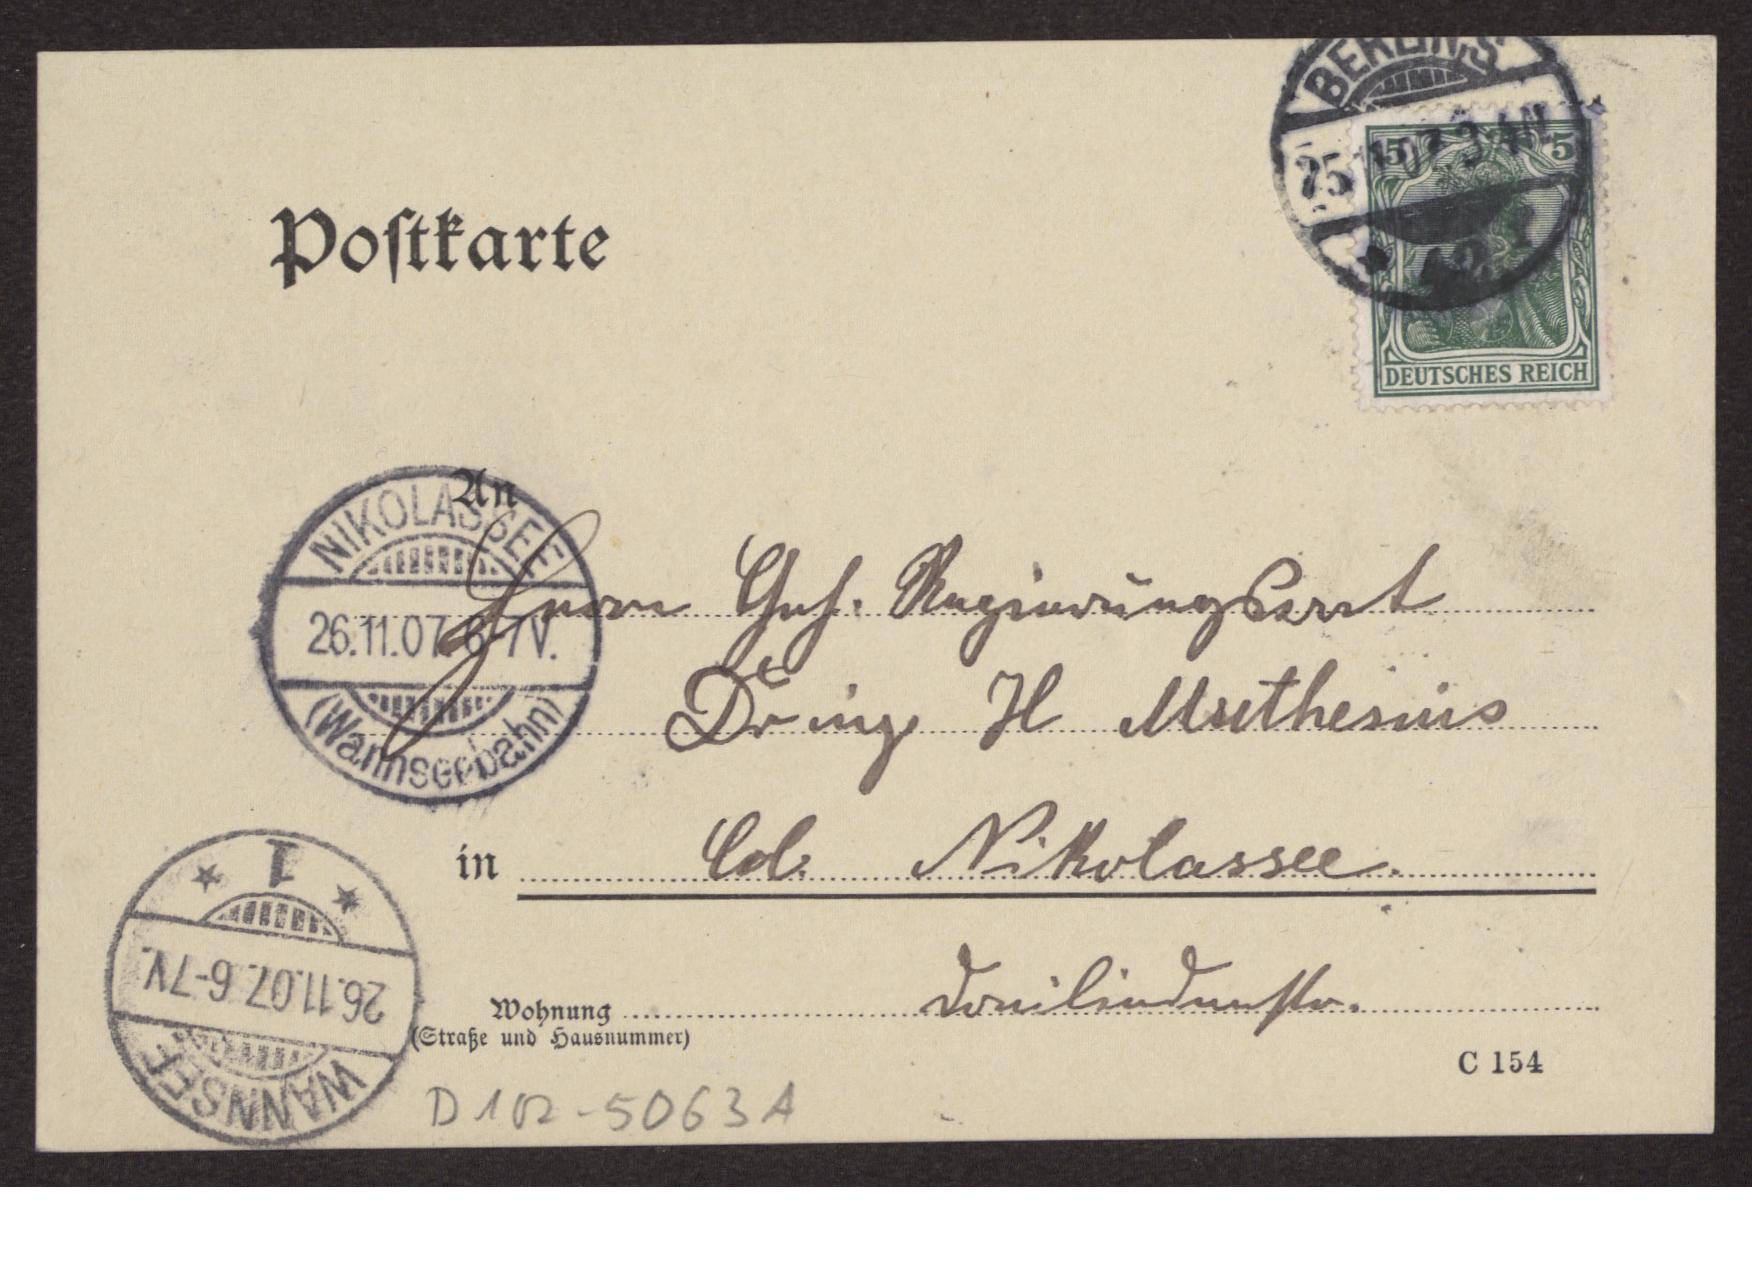 BERLIN S
25.11.07. 3-4N.
42
5 5
DEUTSCHES REICH
Postkarte
An
NIKOLASSEE
26.11.07. 6-7V.
(Wannseebahn)
Herrn Geh. Regierungsrat
Dr ing H Muthesius
in Col. Nikolassee.
Wohnung Dreilindenstr.
(Straße und Hausnummer)
C 154
1
26.11.07. 6-7V.
WANNSEE
D 102-5063 A